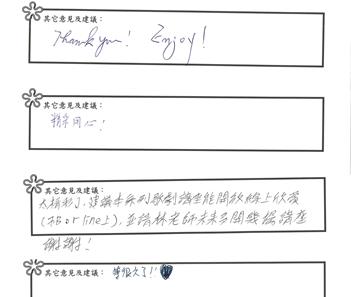 其它意見及建議:
Thank you! Enjoy!
其它意見及建議:
精采用心!
其它意見及建議:
太精彩了,建議本系列歌劇講座能開放線上欣賞
(FB or line上),並請林老師未來多開幾個講座
謝謝!
其它意見及建議: 等很久了!!